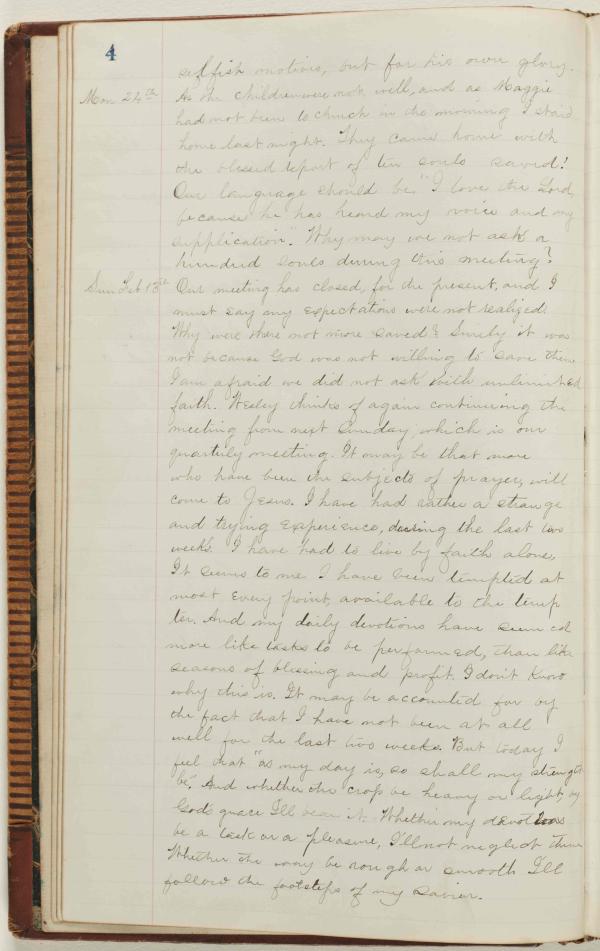 4
selfish motives, but for his own glory.
Mon 24th As the children were not well, and as Maggie
had not been to church in the morning I staid
home last night. They came home with
the blessed report of ten souls saved!
Our language should be, "I love the Lord,
because he has heard my voice and my
supplication". Why may we not ask a
hundred souls during this meeting?
Sun Feb 13th Our meeting has closed, for the present, and I
must say my expectations were not realized.
Why were there not more saved? Surely it was
not because God was not willing to save them
I am afraid we did not ask with unlimited
faith. Wesley thinks of again continuing the
meeting from next Sunday, which is our
quarterly meeting. It may be that more
who have been the subjects of prayer, will
come to Jesus. I have had rather a strange
and trying experience, during the last two
weeks. I have had to live by faith alone,
It seems to me I have been tempted at
most every point, available to the temp
ter. And my daily devotions have seemed
more like tasks to be performed, than like
seasons of blessing and profit. I don't know
why this is. It may be accounted for by
the fact that I have not been at all
well for the last two weeks. But today I
feel that "as my day is, so shall my strength
be". And whether the cross be heavy or light, by
God's grace I'll bear it. Whether my devotions
be a task or a pleasure, I'll not neglect them
Whether the way be rough or smooth I'll
follow the footsteps of my Savior.